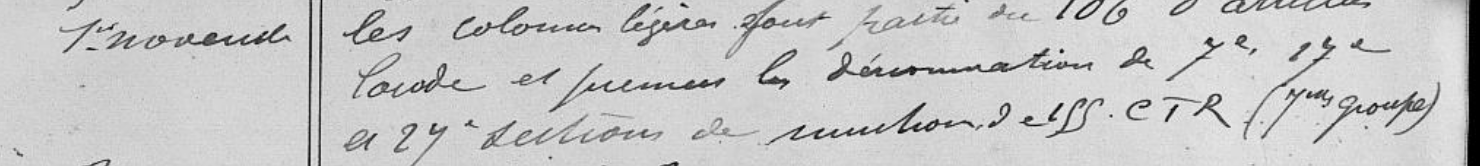 1er novembre les colonnes légères font partie du 106e d'artillerie
lourde et prennent la dénomination de 7e, 17e
et 27e sections de munition, d. C T R (7me groupe)